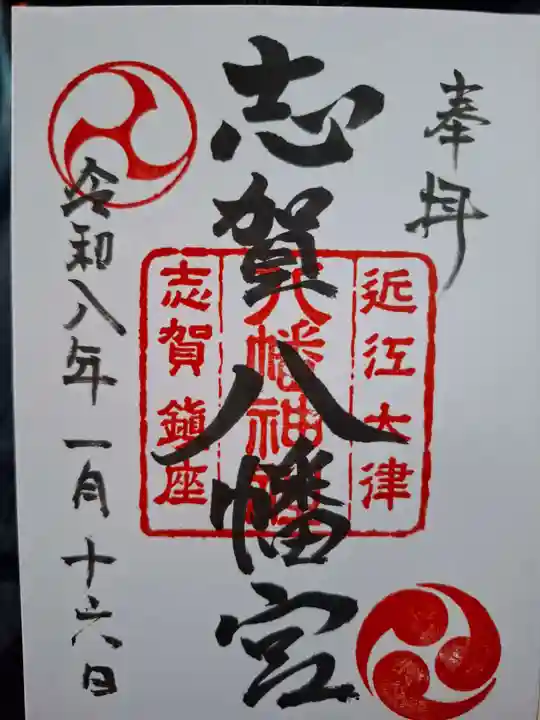 奉拝
志賀八幡宮
近江大津
八幡神
志賀鎮座
令和八年一月十六日